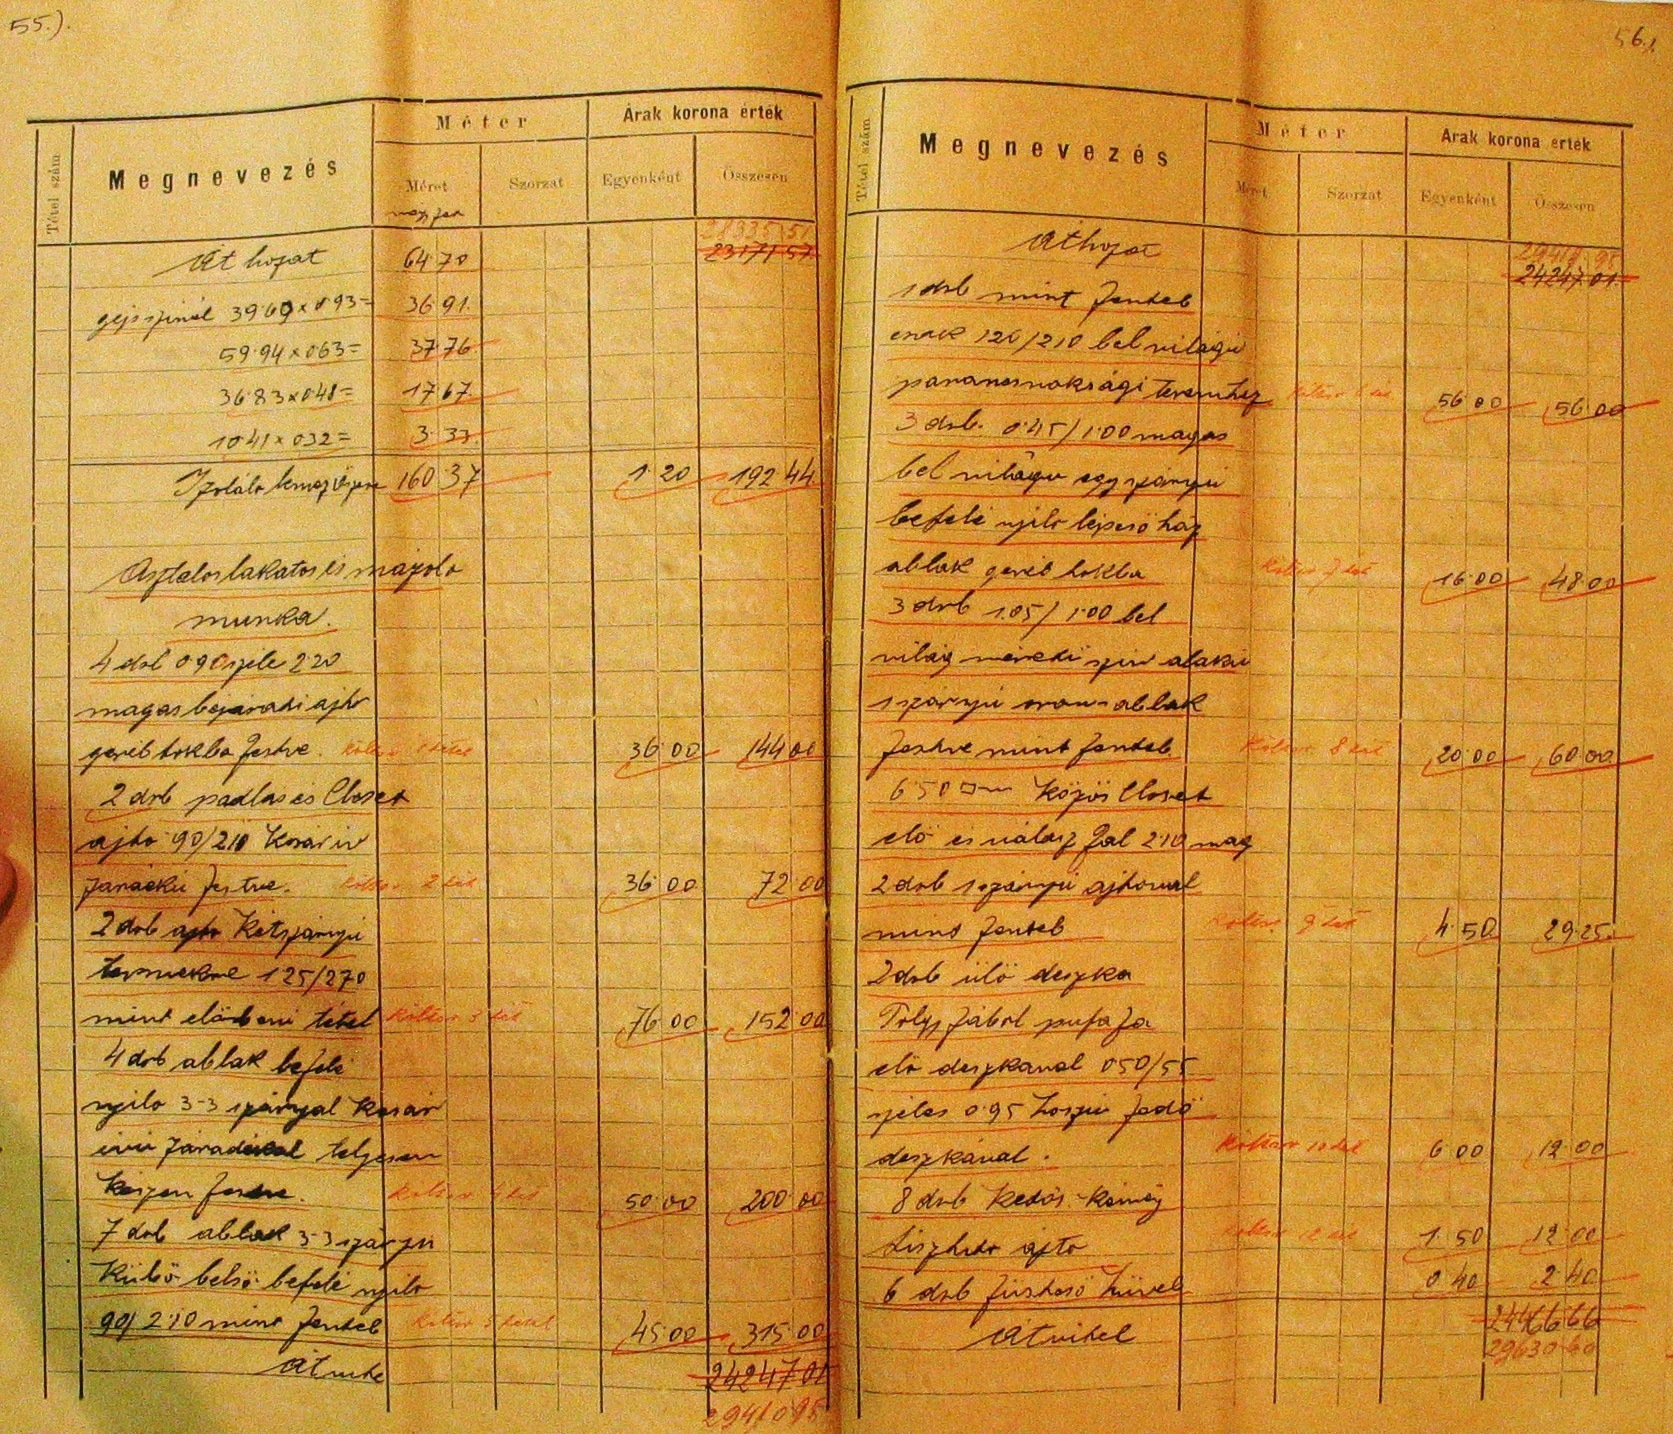 55.).
Tétel szám
Megnevezés
Méter
Méret
Szorzat
Árak korona érték
Egyenként
Összesen
Át hozat 64 70
23171 57
39·69 x 0·93 = 36 91.
59·94 x 063 = 37 76
36·83 x 0·48 = 17 67.
10·41 x 032 = 3·33.
160·37 1·20 192·44
Asztalos lakatos és mázolo
munka.
4 dab 090 széle 220
magas bejáradi ajto
geréb tokba festve. 36·00 144 00
2 drb padlas és Closet
ajto 90/210 Kosár iv
záraékú festve. Költsv. 2 tét 36·00 72·00
2 drb ajto Kétszárnyú
termekre 125/270
mint elöbeni tétel Költsv 3 tét 76·00 152·00
4 drb ablak befelé
nyilo 3-3 szárnyal Kosár
ivü záradékal teljesen
Készen festve. Költsv 4 tét 50·00 200·00
7 drb ablak 3-3 szárnyu
Külsö belsö befelé nyilo
90/210 mint fenteb Költsv 5 tétel 45·00 315·00
Átvite
24247 01
29410 95
56.).
Tétel szám
Megnevezés
Méter
Méret
Szorzat
Árak korona érték
Egyenként
Összesen
Áthozat
29410·95
24247·01
1 drb mint fenteb
csak 120/210 bel világú
parancsnoksági teremhez 56·00 56·00
3 drb. 0·45/1·00 magas
bel világu egy szárnyú
befelé nyilo lépcsö ház
ablak geréb tokba Költsv 7 tét 16·00 48·00
3 drb 1·05/1·00 bel
világ méretü szív alakú
1 szárnyú orom ablak
festve mint fenteb. Költsv. 8 tét 20·00 60·00
6·50 Közös Closet
elö és válasz fal 2·10 mag
2 drb 1 szárnyú ajtoval
mint fenteb Költsv. 9 tét 4·50 29·25.
2 drb ülö deszka
Tölgy fábol puhafa
elö deszkával 050/55
széles 0·95 hoszú fedö
deszkával. Költsv 10 tét 6·00 12·00
8 drb Ketös Kémény
tisztito ajto 1·50 12·00
6 drb füstcsö hüvel 0·40 2·40
24466 66
Átvitel
29630 60